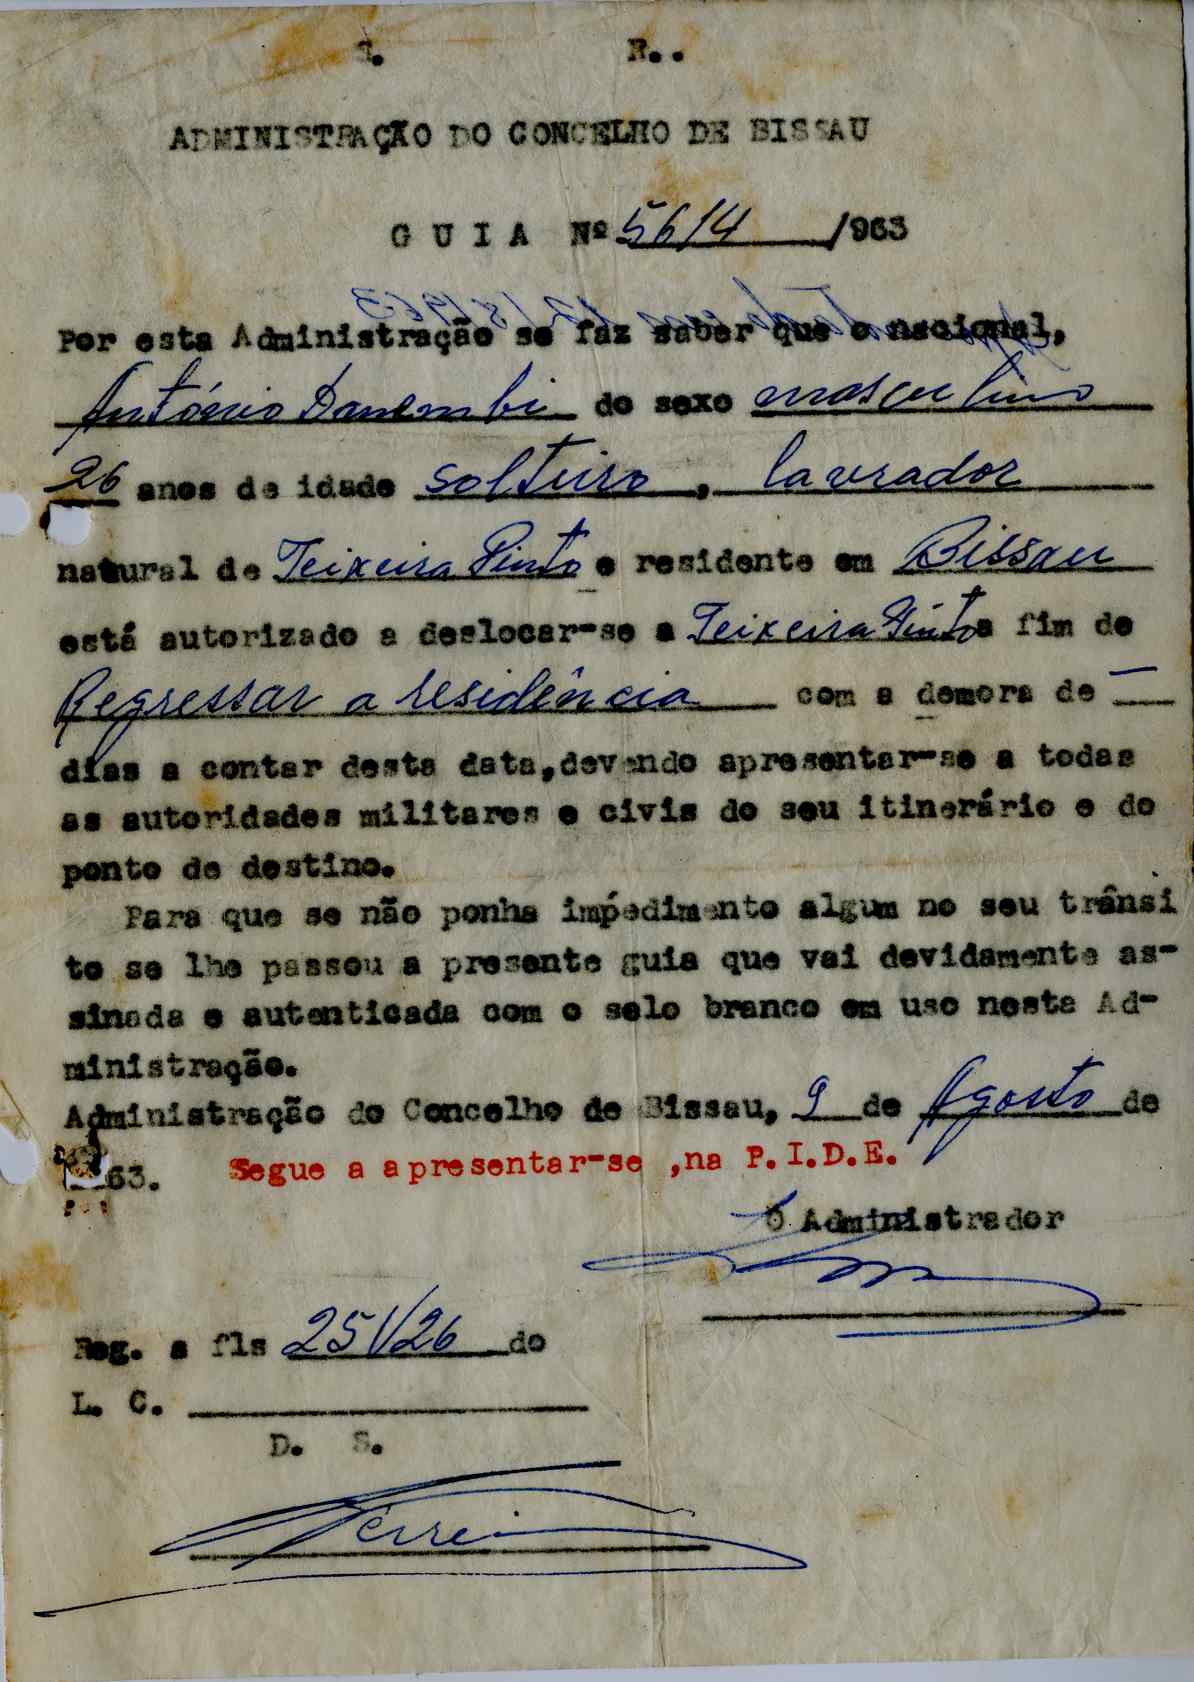 R..
ADMINISTRAÇÃO DO CONCELHO DE BISSAU
G U I A Nº 5614 /963
Por esta Administração se faz saber que o nacional,
António Danembi do sexo masculino
26 anos de idade solteiro, lavrador
natural de Teixeira Pinto e residente em Bissau
está autorizado a deslocar-se a Teixeira Pinto a fim de
Regressar a residência com a demora de —
dias a contar desta data, devendo apresentar-se a todas
as autoridades militares e civis do seu itinerário e do
ponto de destino.
Para que se não ponha impédimento algum no seu trânsi
to se lhe passou a presente guia que vai devidamente as-
sinada e autenticada com o selo branco em uso nesta Ad-
ministração.
Administração do Concelho de Bissau, 9 de Agosto de
63. Segue a apresentar-se ,na P.I.D.E.
O Administrador
Reg. a fls 251/26 do
L. C.
D. S.